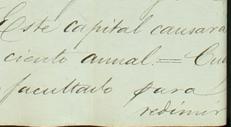 Este capital causará
ciento annal. = Que
facultado para
redimir